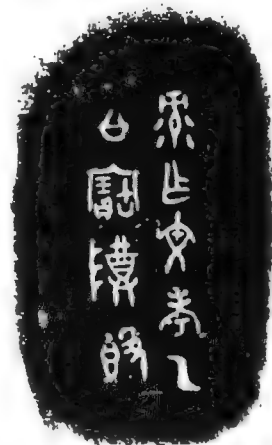 乍文考乙
公寶尊彝